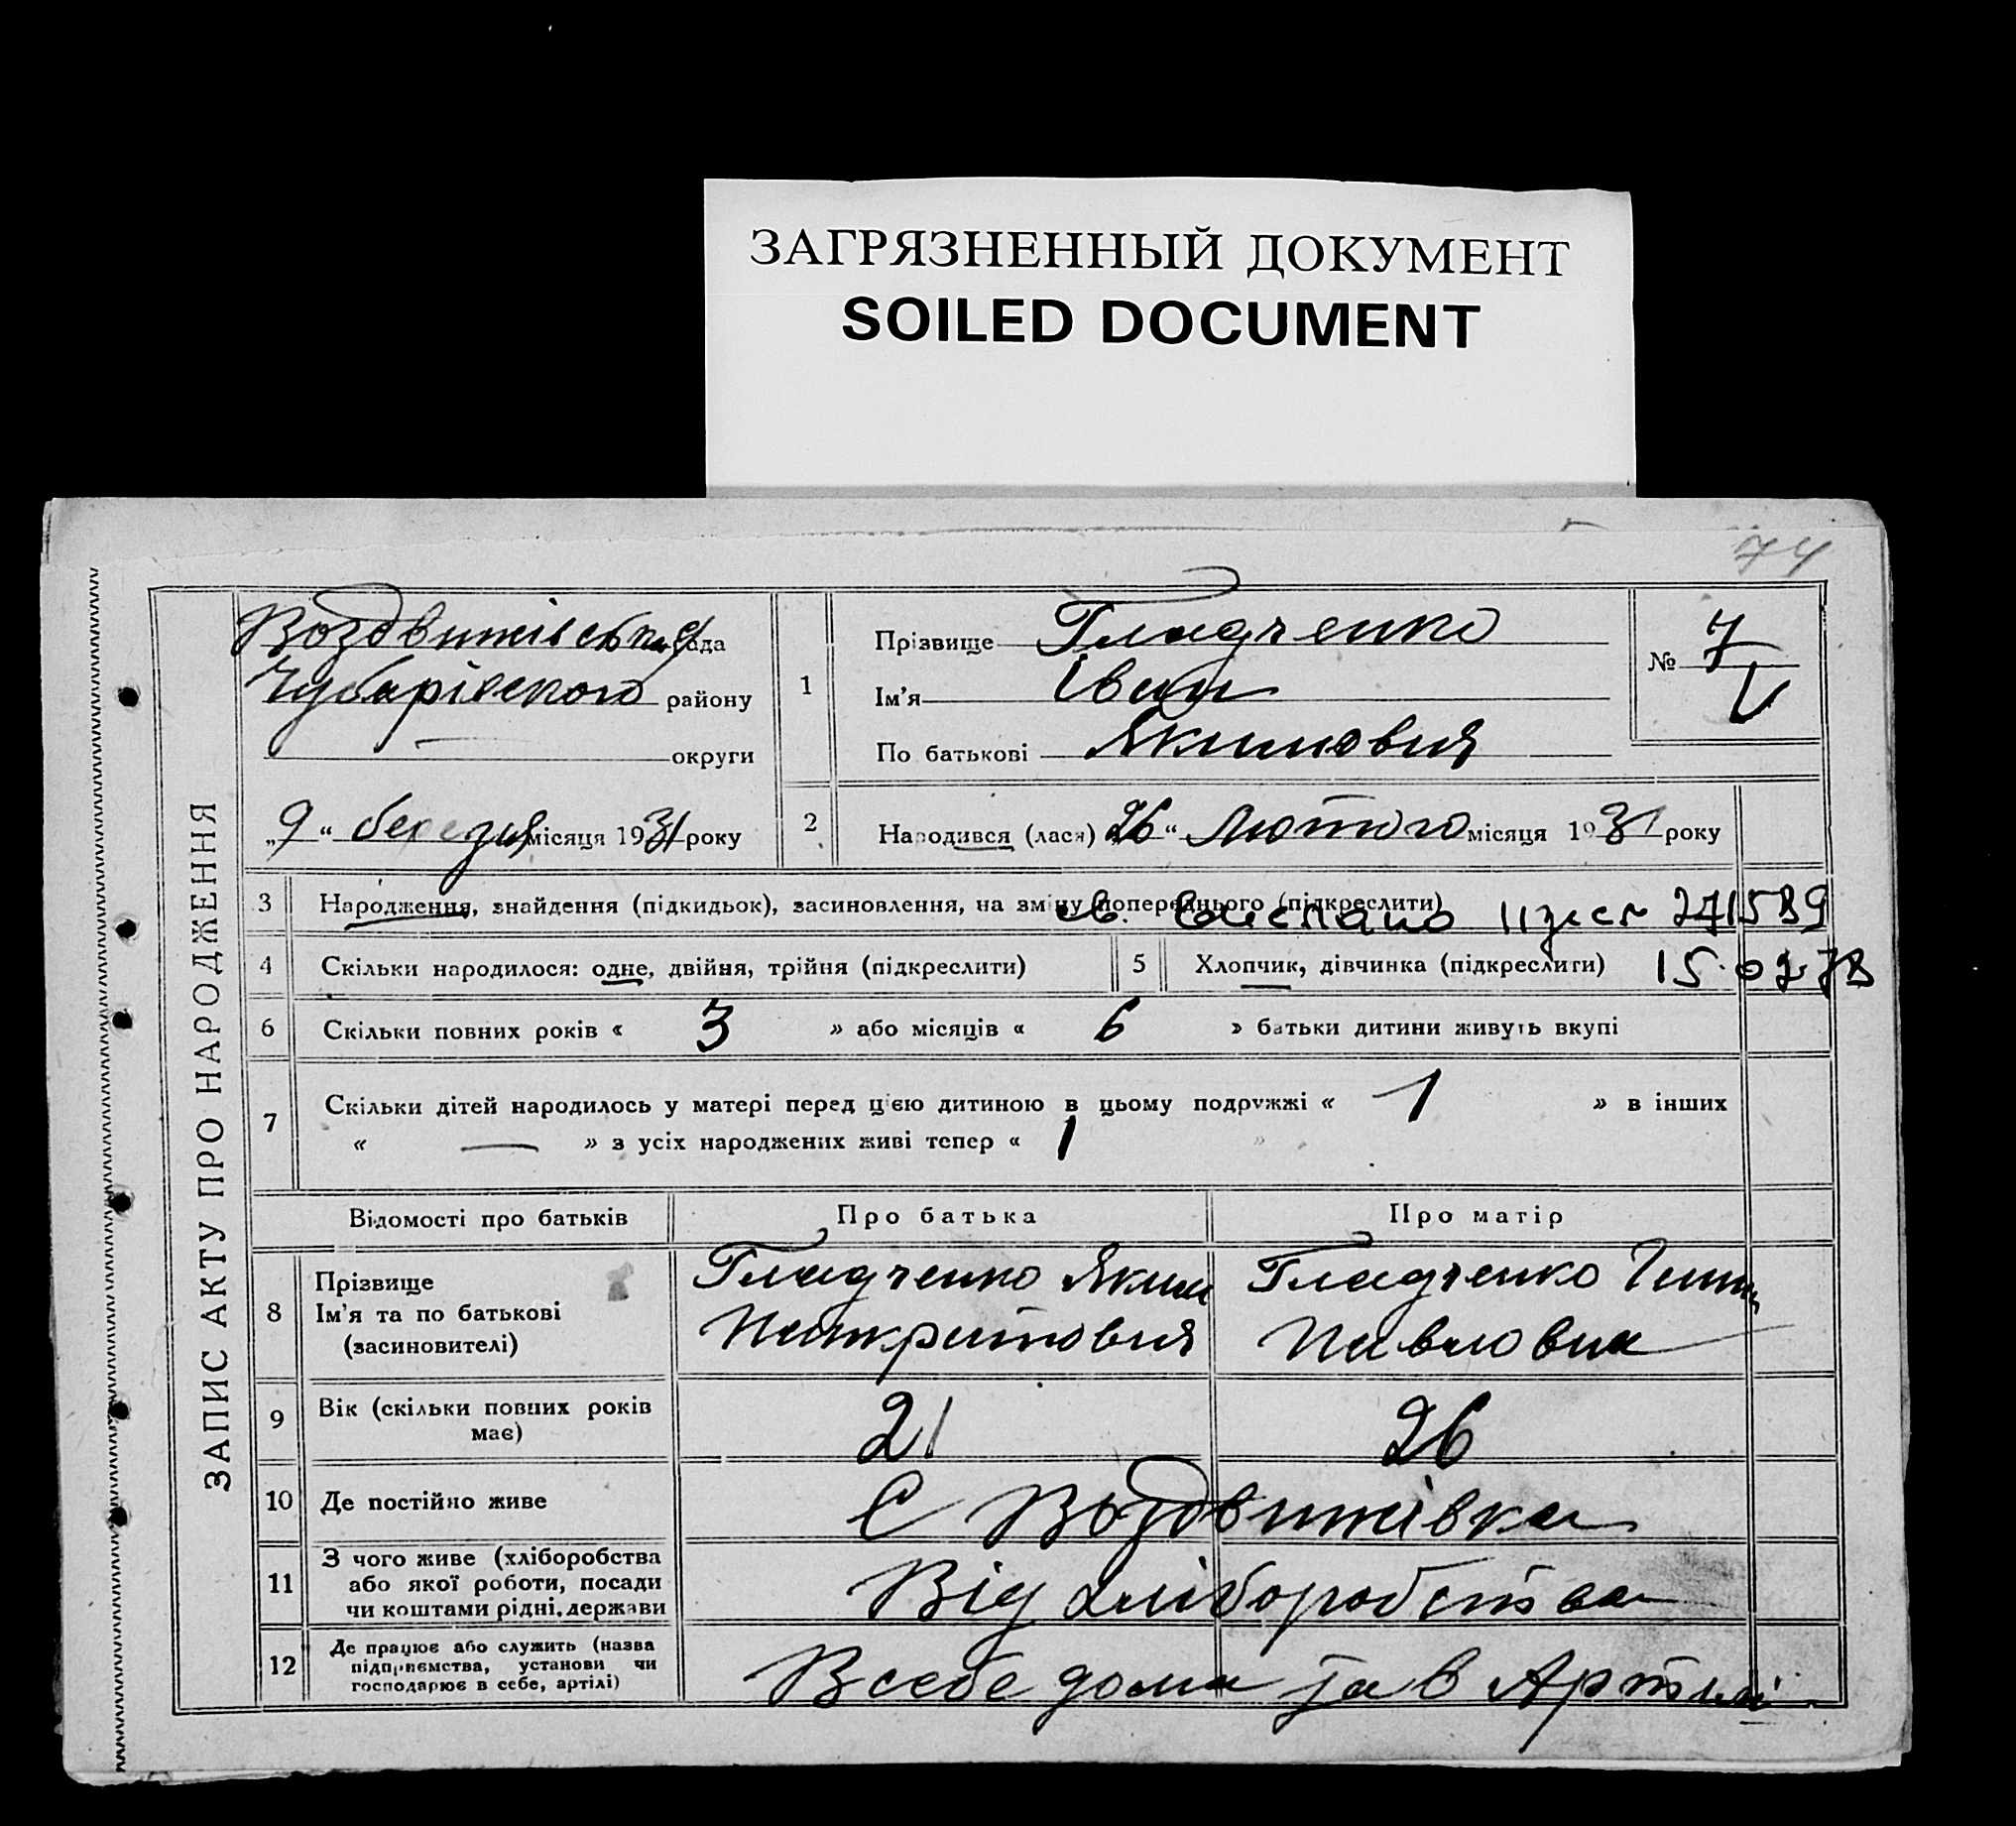 ЗАГРЯЗНЕННЫЙ ДОКУМЕНТ
SOILED DOCUMENT
74
ЗАПИС АКТУ ПРО НАРОДЖЕННЯ
Воздвижівська рада
Чубарівского району
округи
„9“ березня місяця 1931 року
1
Прізвище Гладченко
Ім'я Іван
По батькові Якимович
№ 7
2
Народився (лася) 26“ Лютого місяця 1931 року
3 Народження, знайдення (підкидьок), засиновлення, на зміну попереднього (підкреслити)
св. 271589
4 Скільки народилося: одне, двійня, трійня (підкреслити)
5 Хлопчик, дівчинка (підкреслити) 15.02.78
6 Скільки повних років « 3 » або місяців « 6 » батьки дитини живуть вкупі
7 Скільки дітей народилось у матері перед цією дитиною в цьому подружжі « 1 » в інших
« — » з усіх народжених живі тепер « 1 »
Відомості про батьків
Про батька
Про матір
8 Прізвище
Ім'я та по батькові
(засиновителі)
Гладченко Яким
Гладченко
Павловна
9 Вік (скільки повних років
має)
21
26
10 Де постійно живе
С Воздвижівка
11 З чого живе (хліборобства
або якої роботи, посади
чи коштами рідні, держави
Від хліборобства
12 Де працює або служить (назва
підприємства, установи чи
господарює в себе, артілі)
В себе дома та в Артілі